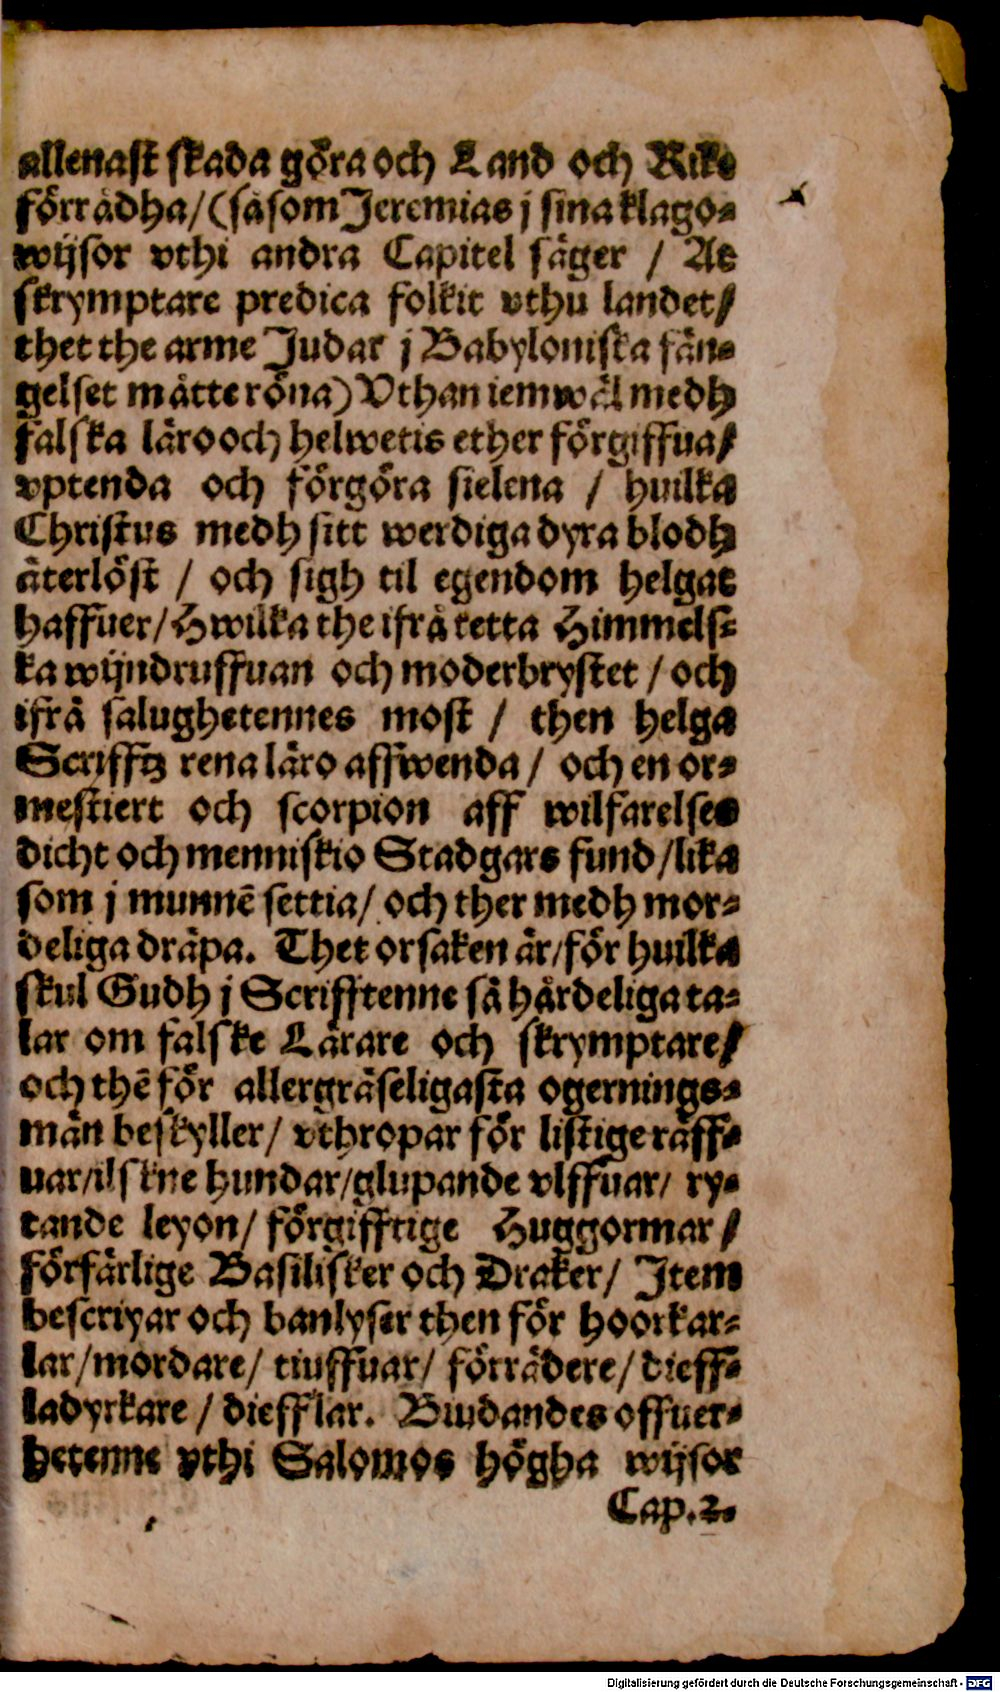 allenast skada göra och Land och Rike
förrådha/(såsom Jeremias j sina klago-
wijsor vthi andra Capitel säger / At
skrymptare predica folkit vthu landet/
thet the arme Judar j Babyloniska fän-
gelset måtte röna) Vthan iemwäl medh
falska läro och helwetis ether förgiffua/
vptenda och förgöra sielena / huilka
Christus medh sitt werdiga dyra blodh
återlöst / och sigh til egendom helgat
haffuer/Hwilka the ifrå tetta Himmels-
ka wijndruffuan och moderbrystet / och
ifrå salughetennes most / then helga
Scrifftz rena läro affwenda / och en or-
mestiert och scorpion aff wilfarelses
dicht och menniskio Stadgars fund /lika
som j munnē settia/ och ther medh mor-
deliga dräpa. Thet orsaken är/för huilka
skul Gudh j Scrifftenne så hårdeliga ta-
lar om falske Lärare och skrymptare/
och thē för allergräseligasta ogernings-
män beskyller/ vthropar för listige räff-
uar/ilskne hundar/glupande vlffuar/ ry-
tande leyon/ förgifftige Huggormar/
förfärlige Basilisker och Draker/ Item
bescriyar och banlyser then för hoorkar-
lar/mordare/ tiuffuar/ förrädere/ dieff-
ladyrkare / diefflar. Biudandes offuer-
hetenne vthi Salomos högha wijsor
Cap.2.
Digitalisierung gefördert durch die Deutsche Forschungsgemeinschaft - DFG